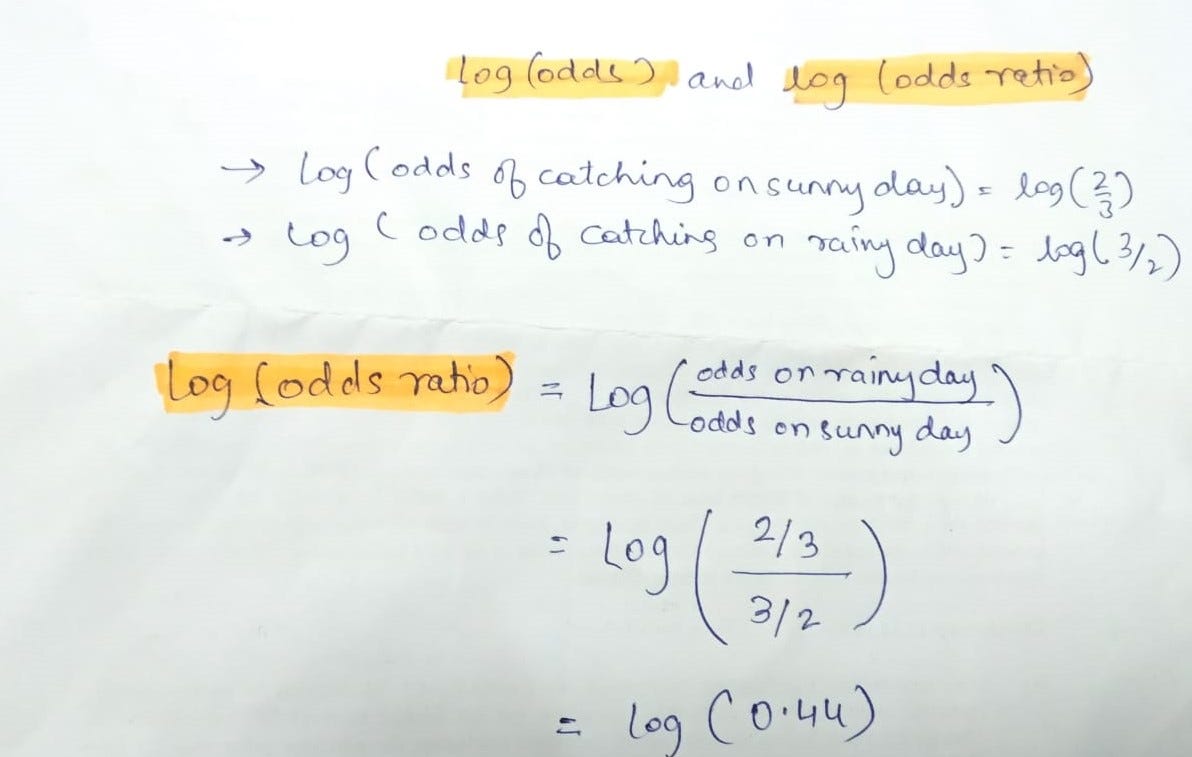 Log (odds) and log (odds ratio)
→ Log (odds of catching on sunny day) = log(2/3)
→ Log (odds of catching on rainy day) = log(3/2)
Log (odds ratio) = Log (odds on rainy day / odds on sunny day)
= Log (2/3 / 3/2)
= log (0.44)